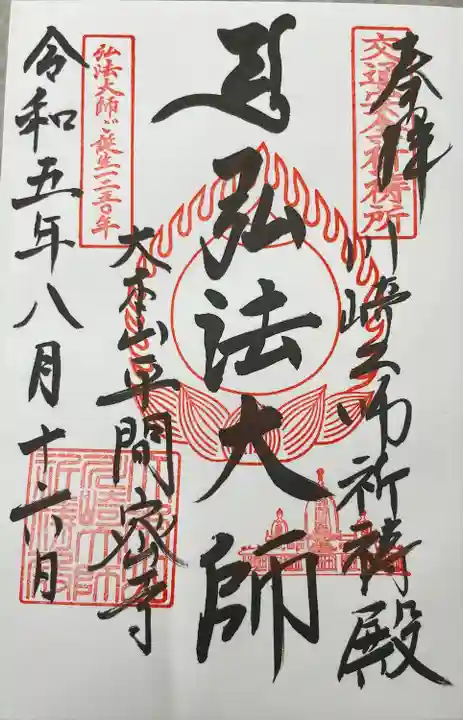 奉拝
交通安全祈祷所
川崎大師祈祷殿
弘法大師
弘法大師ご誕生一二五〇年
大本山平間密寺
令和五年八月十六日